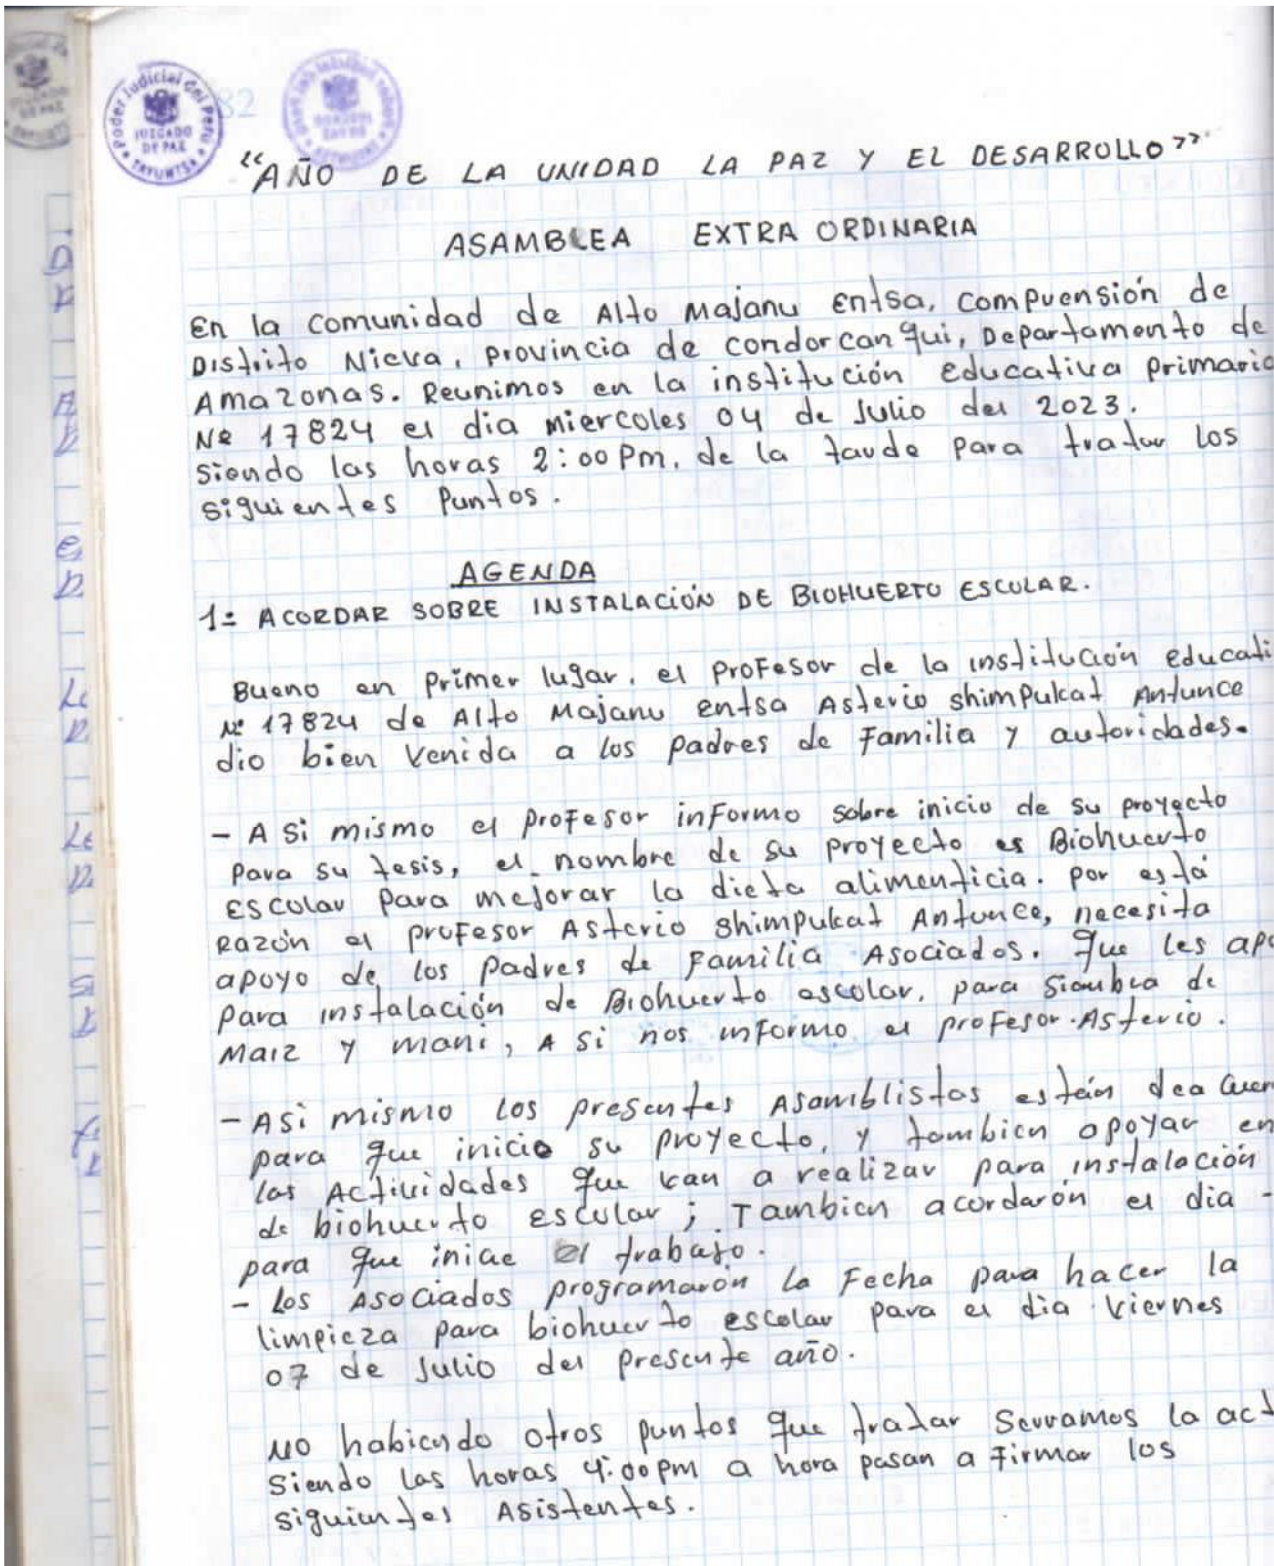 Poder Judicial del Perú
JUZGADO
DE PAZ
82
"AÑO DE LA UNIDAD LA PAZ Y EL DESARROLLO"
ASAMBLEA EXTRA ORDINARIA
En la comunidad de Alto Majanu Entsa, compuensión de
Distrito Nieva, provincia de condorcanqui, Departamento de
Amazonas. Reunimos en la institución Educativa primaria
Nº 17824 el dia miercoles 04 de Julio del 2023.
Siendo las horas 2:00 Pm, de la tarde para tratar los
siguientes Puntos.
AGENDA
1: ACORDAR SOBRE INSTALACIÓN DE BIOHUERTO ESCOLAR.
Bueno en primer lugar, el profesor de la institución educati
Nº 17824 de Alto Majanu entsa Asterio shimpukat Antunce
dio bien Venida a los padres de Familia y autoridades.
- A Si mismo el profesor informo sobre inicio de su proyecto
para su tesis, el nombre de su proyecto es Biohuerto
Escolar para mejorar la dieta alimenticia. por está
Razón el profesor Asterio shimpukat Antunce, necesita
apoyo de los padres de Familia Asociados. que les apo
para instalación de Biohuerto escolar, para siembra de
Maiz y mani, A si nos informo el profesor Asterio.
- Asi mismo los presentes Asamblistas están dea Cuer
para que inicio su proyecto, y tambien apoyar en
las Actividades que van a realizar para instalación
de biohuerto escolar; Tambien acordarón el dia -
para que inicie el trabajo.
- Los Asociados programarón la Fecha para hacer la
limpieza para biohuerto escolar para el dia viernes
07 de Julio del presente año.
No habiendo otros puntos que tratar Serramos la act
Siendo las horas 4:00 pm a hora pasan a firmar los
siguientes Asistentes.